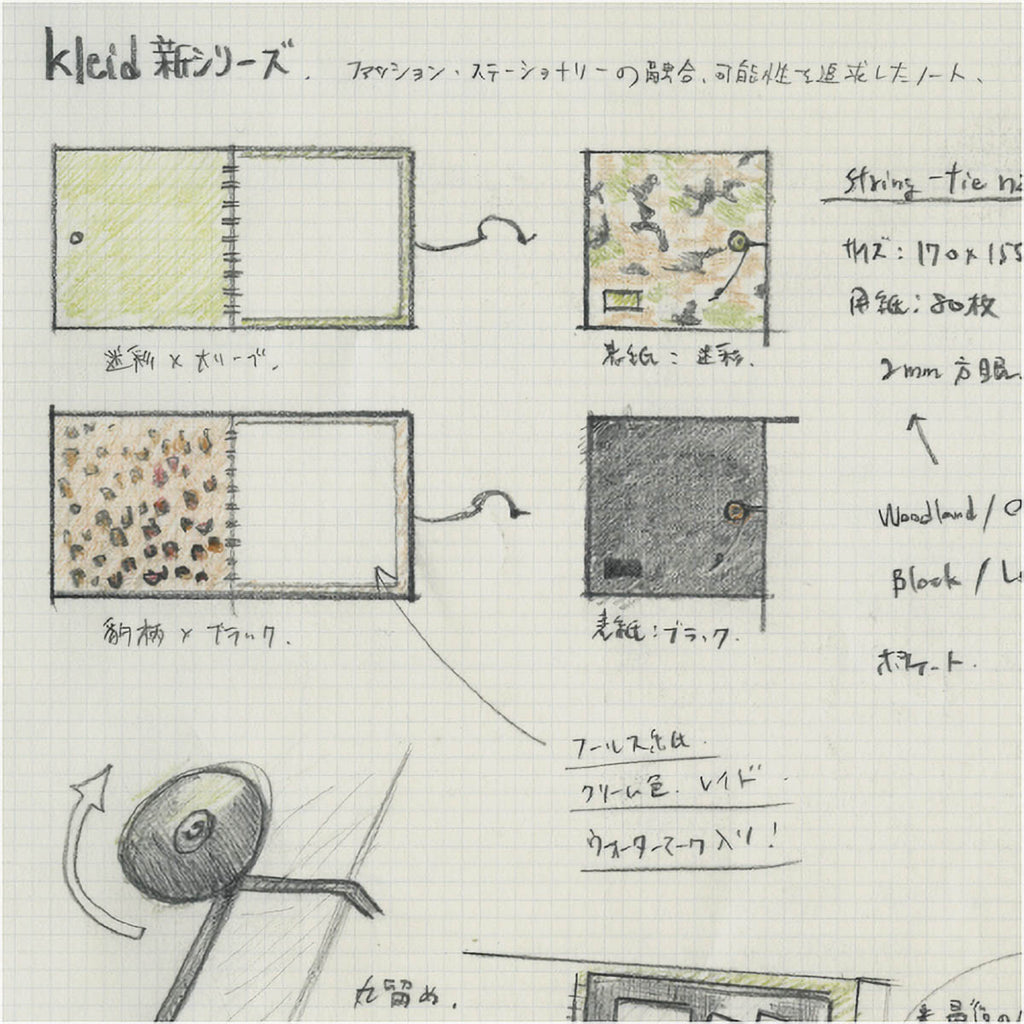 kleid 新シリーズ.
ファッション・ステーショナリーの融合、可能性を追求したノート、
string-tie
サイズ：170×155
用紙：80枚
2mm 方眼
迷彩×オリーブ.
表紙：迷彩.
Woodland /
Black /
豹柄×ブラック.
表紙：ブラック.
フールス紙.
クリーム色. レイド
ウォーターマーク入り！
丸留め.
最後の